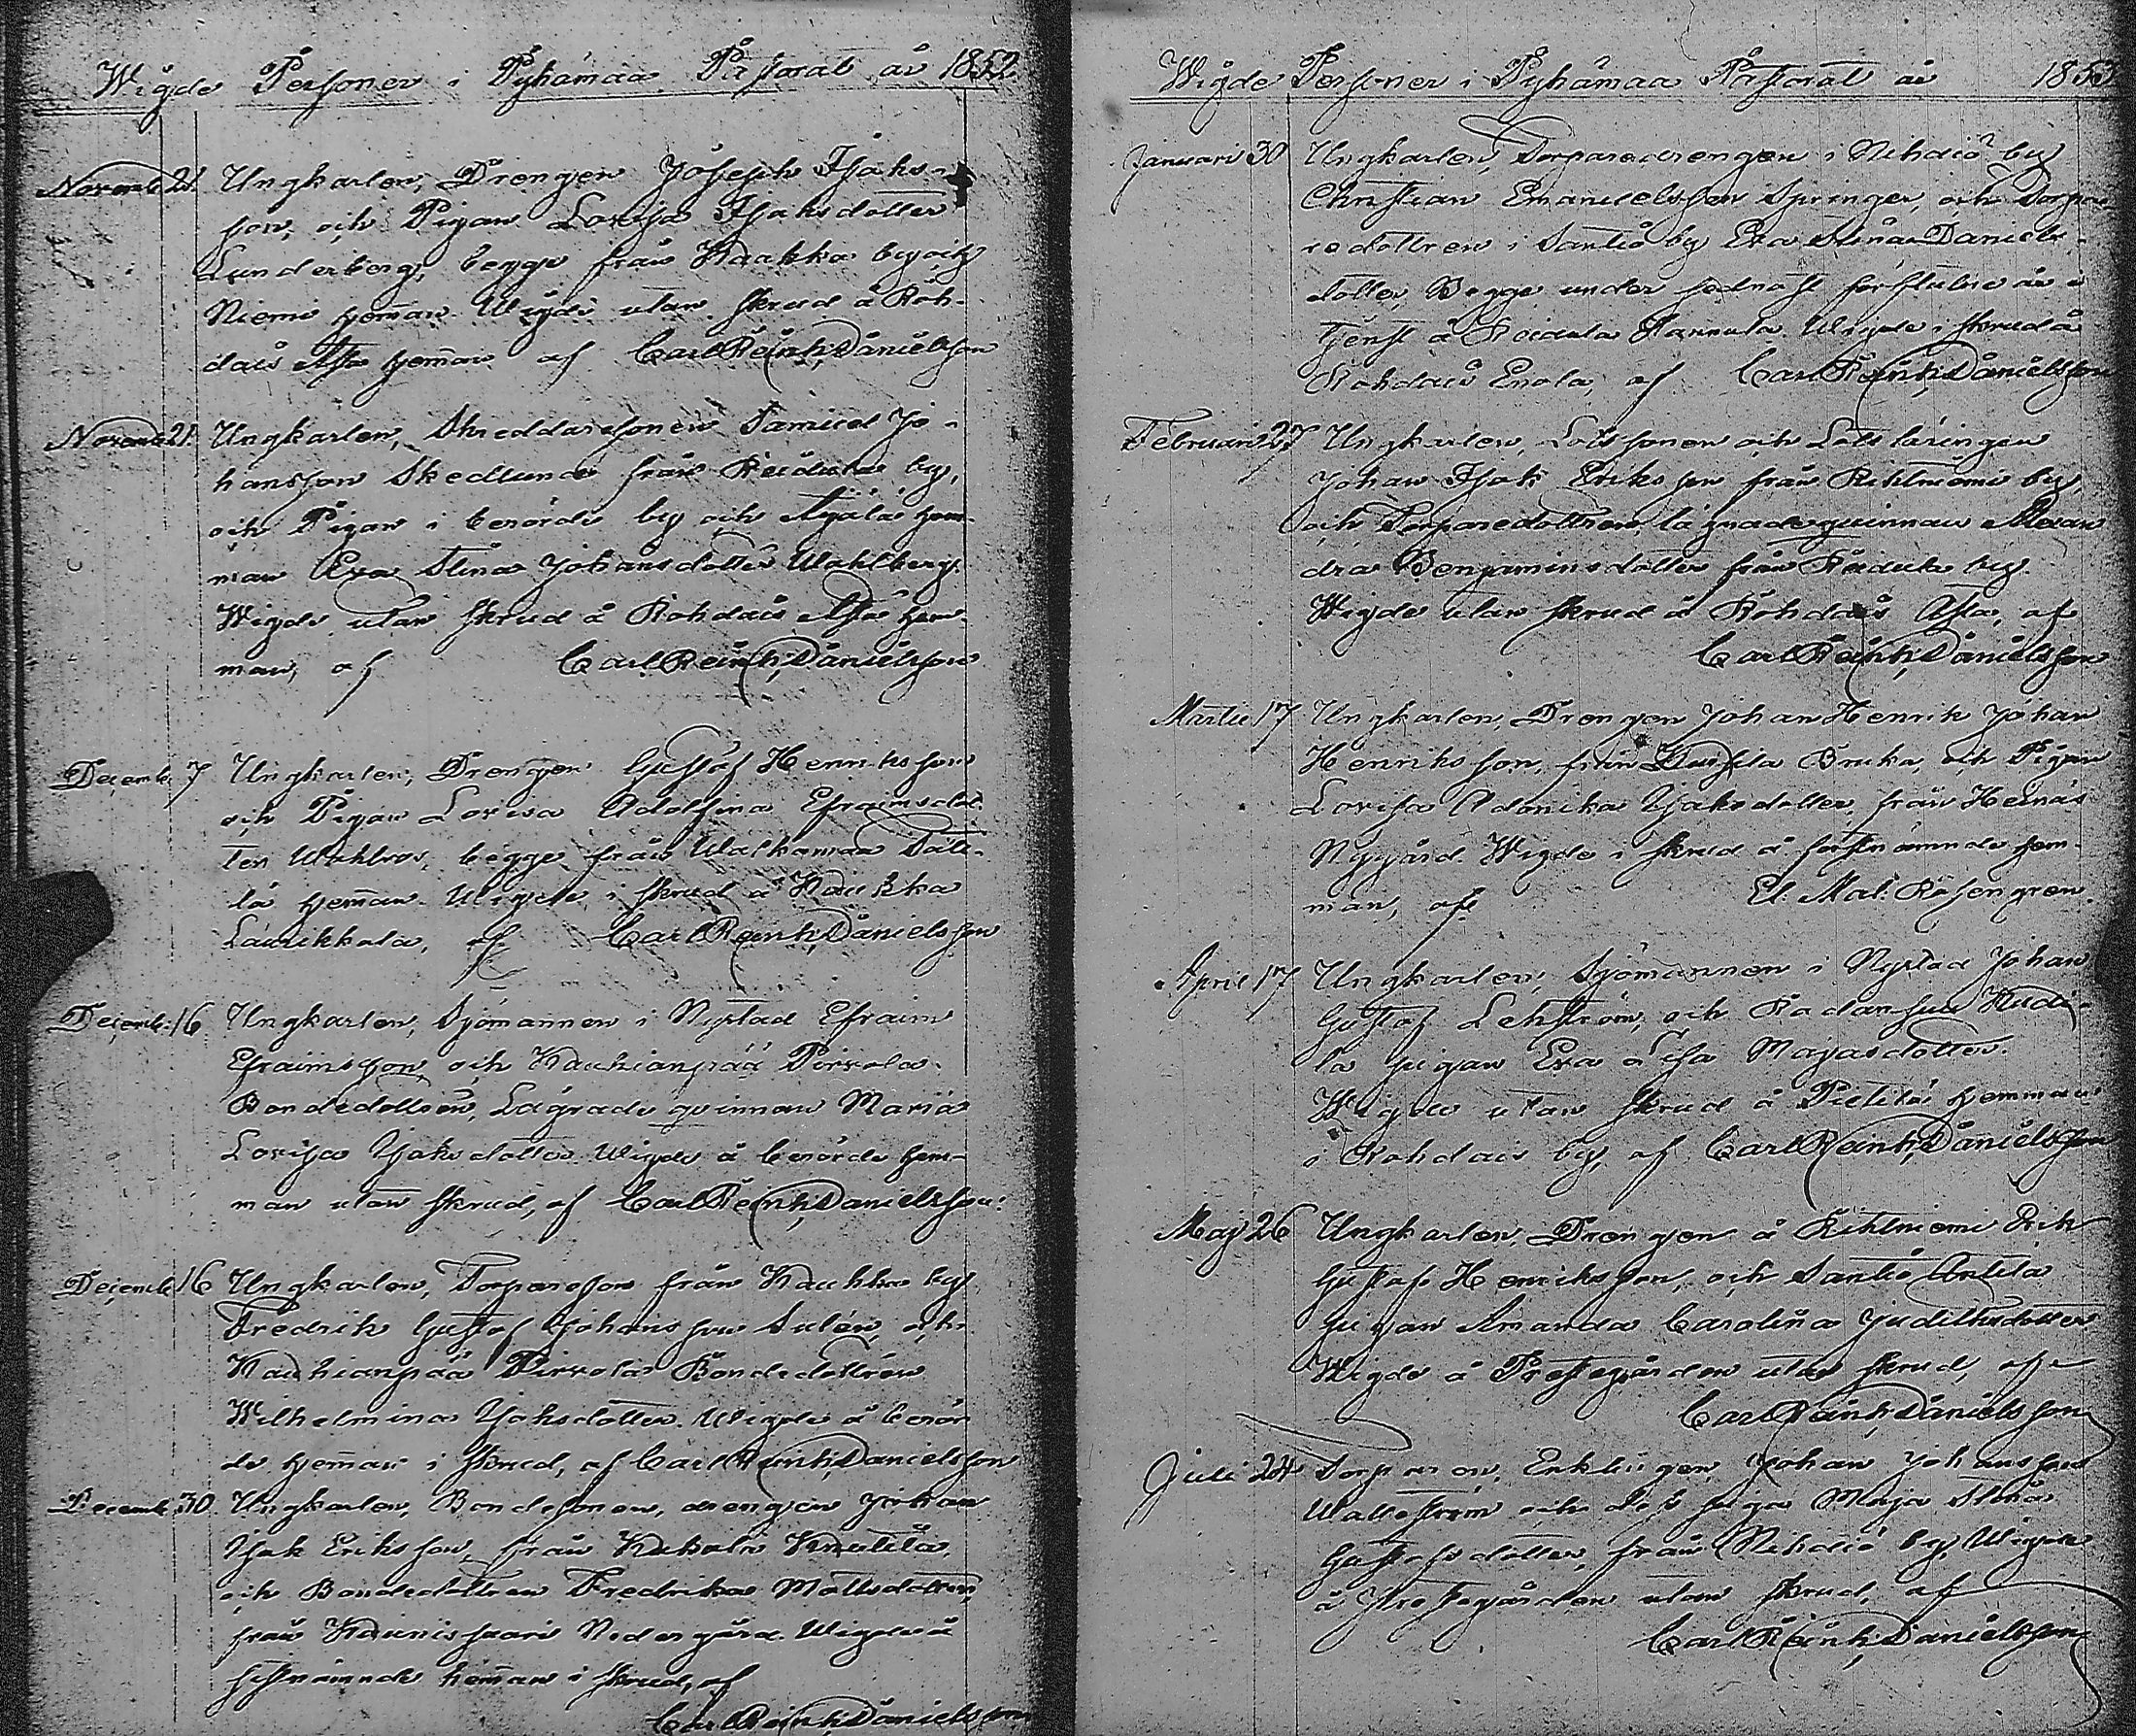 Wigde Personer i Pyhämaa Pastorat år 1852
Novemb 21. Ungkarlen, Drengen Joseph Isaks-
son, och Pigan Lovisa Isaksdotter
Lunderberg, begge från Kaukka by och
Niemi hem̄an. Wigde utan skrud å Roh-
dais hem̄an af Carl Reinh. Danielsson
Novemb 21. Ungkarlen, Skreddaresonen Samuel Jo-
hansson Skedlund från Reidula by,
och Pigan i berörde by och Äyälä hem-
man Eva Stina Johansdotter Wahlberg.
Wigde utan skrud å Rohdais hem-
man, af Carl Reinh. Danielsson
Decemb 7 Ungkarlen, Drengen Gustaf Henriksson
och Pigan Lovisa Adolfina Efraimsdot-
ter Wahlros, begge från Walkamaa
lä hem̄an. Wigde i skrud å Kaukka
Laurikkala, af Carl Reinh. Danielsson
Decemb. 16. Ungkarlen, Sjömannen i Nystad Efraim
Efraimsson, och Kaukianpää Pirkola
Bondedottren, Lägrade qvinnan Maria
Lovisa Isaksdotter. Wigde å berörde hem-
man utan skrud, af Carl Reinh. Danielsson.
Decemb 16 Ungkarlen, Torparesson från Kaukka by
Fredrik Gustaf Johansson Sulén, och
Kaukianpää Pirkola Bondedottren
Wilhelmina Isaksdotter. Wigde å berör-
de hem̄an i skrud, af Carl Reinh. Danielsson
Decemb 30. Ungkarlen, Bondesonen, drengen Johan
Isak Eriksson, från Kukola Knutila,
och Bondedottren Fredrika Mattsdotter,
från Kaunissaari Nedergård. Wigde å
sistnämnde hem̄an i skrud, af
Carl Reinh. Danielsson
Wigde Personer i Pyhämaa Pastorat år 1853
Januari 30 Ungkarlen, Torparedrengen i Nihdiö by
Christian Emanuelsson Springer, och Torpa-
redottren i Santio by Eva Stina Daniels-
dotter, Begge under sednast förflutne år i
tjenst å Reidula Pannula. Wigde i skrud å
Rohdais Enola, af Carl Reinh. Danielsson
Februari 27 Ungkarlen, Lotssonen och Lotslärlingen
Johan Isak Eriksson från Rihtniemi by,
och Torparedottren, lägrade qvinnan Alexan-
dra Benjaminsdotter från Reidula by.
Wigde utan skrud å Rohdais, af
Carl Reinh. Danielsson
Martii 17 Ungkarlen, Drengen Johan Henrik Johan
Henriksson, från Kursila Bruka, och Pigan
Lovisa Adonika Isaksdotter, från Heinäs
Nygård. Wigde i skrud å förstnämnde hem-
man, af El. Mal: Rosengren.
April 17 Ungkarlen, Sjömannen i Nystad Johan
Gustaf Lehström, och Radansuu Heidi-
la pigan Eva Lisa Majasdotter.
Wigde utan skrud å Pietilä hemman
i Rohdais by, af Carl Reinh. Danielsson
Maj 26 Ungkarlen, Drengen å Rihtniemi Erik
Gustaf Henriksson, och Santio Anttila
pigan Amanda Carolina Judithsdotter
Wigde å Prestegården utan skrud, af
Carl Reinh. Danielsson
Juli 24 Torparen, Enklingen Johan Johansson
Wallström och dess piga Maja Stina
Gustafsdotter, från Nihdiö by, Wigde
å Prestegården utan skrud, af
Carl Reinh. Danielsson